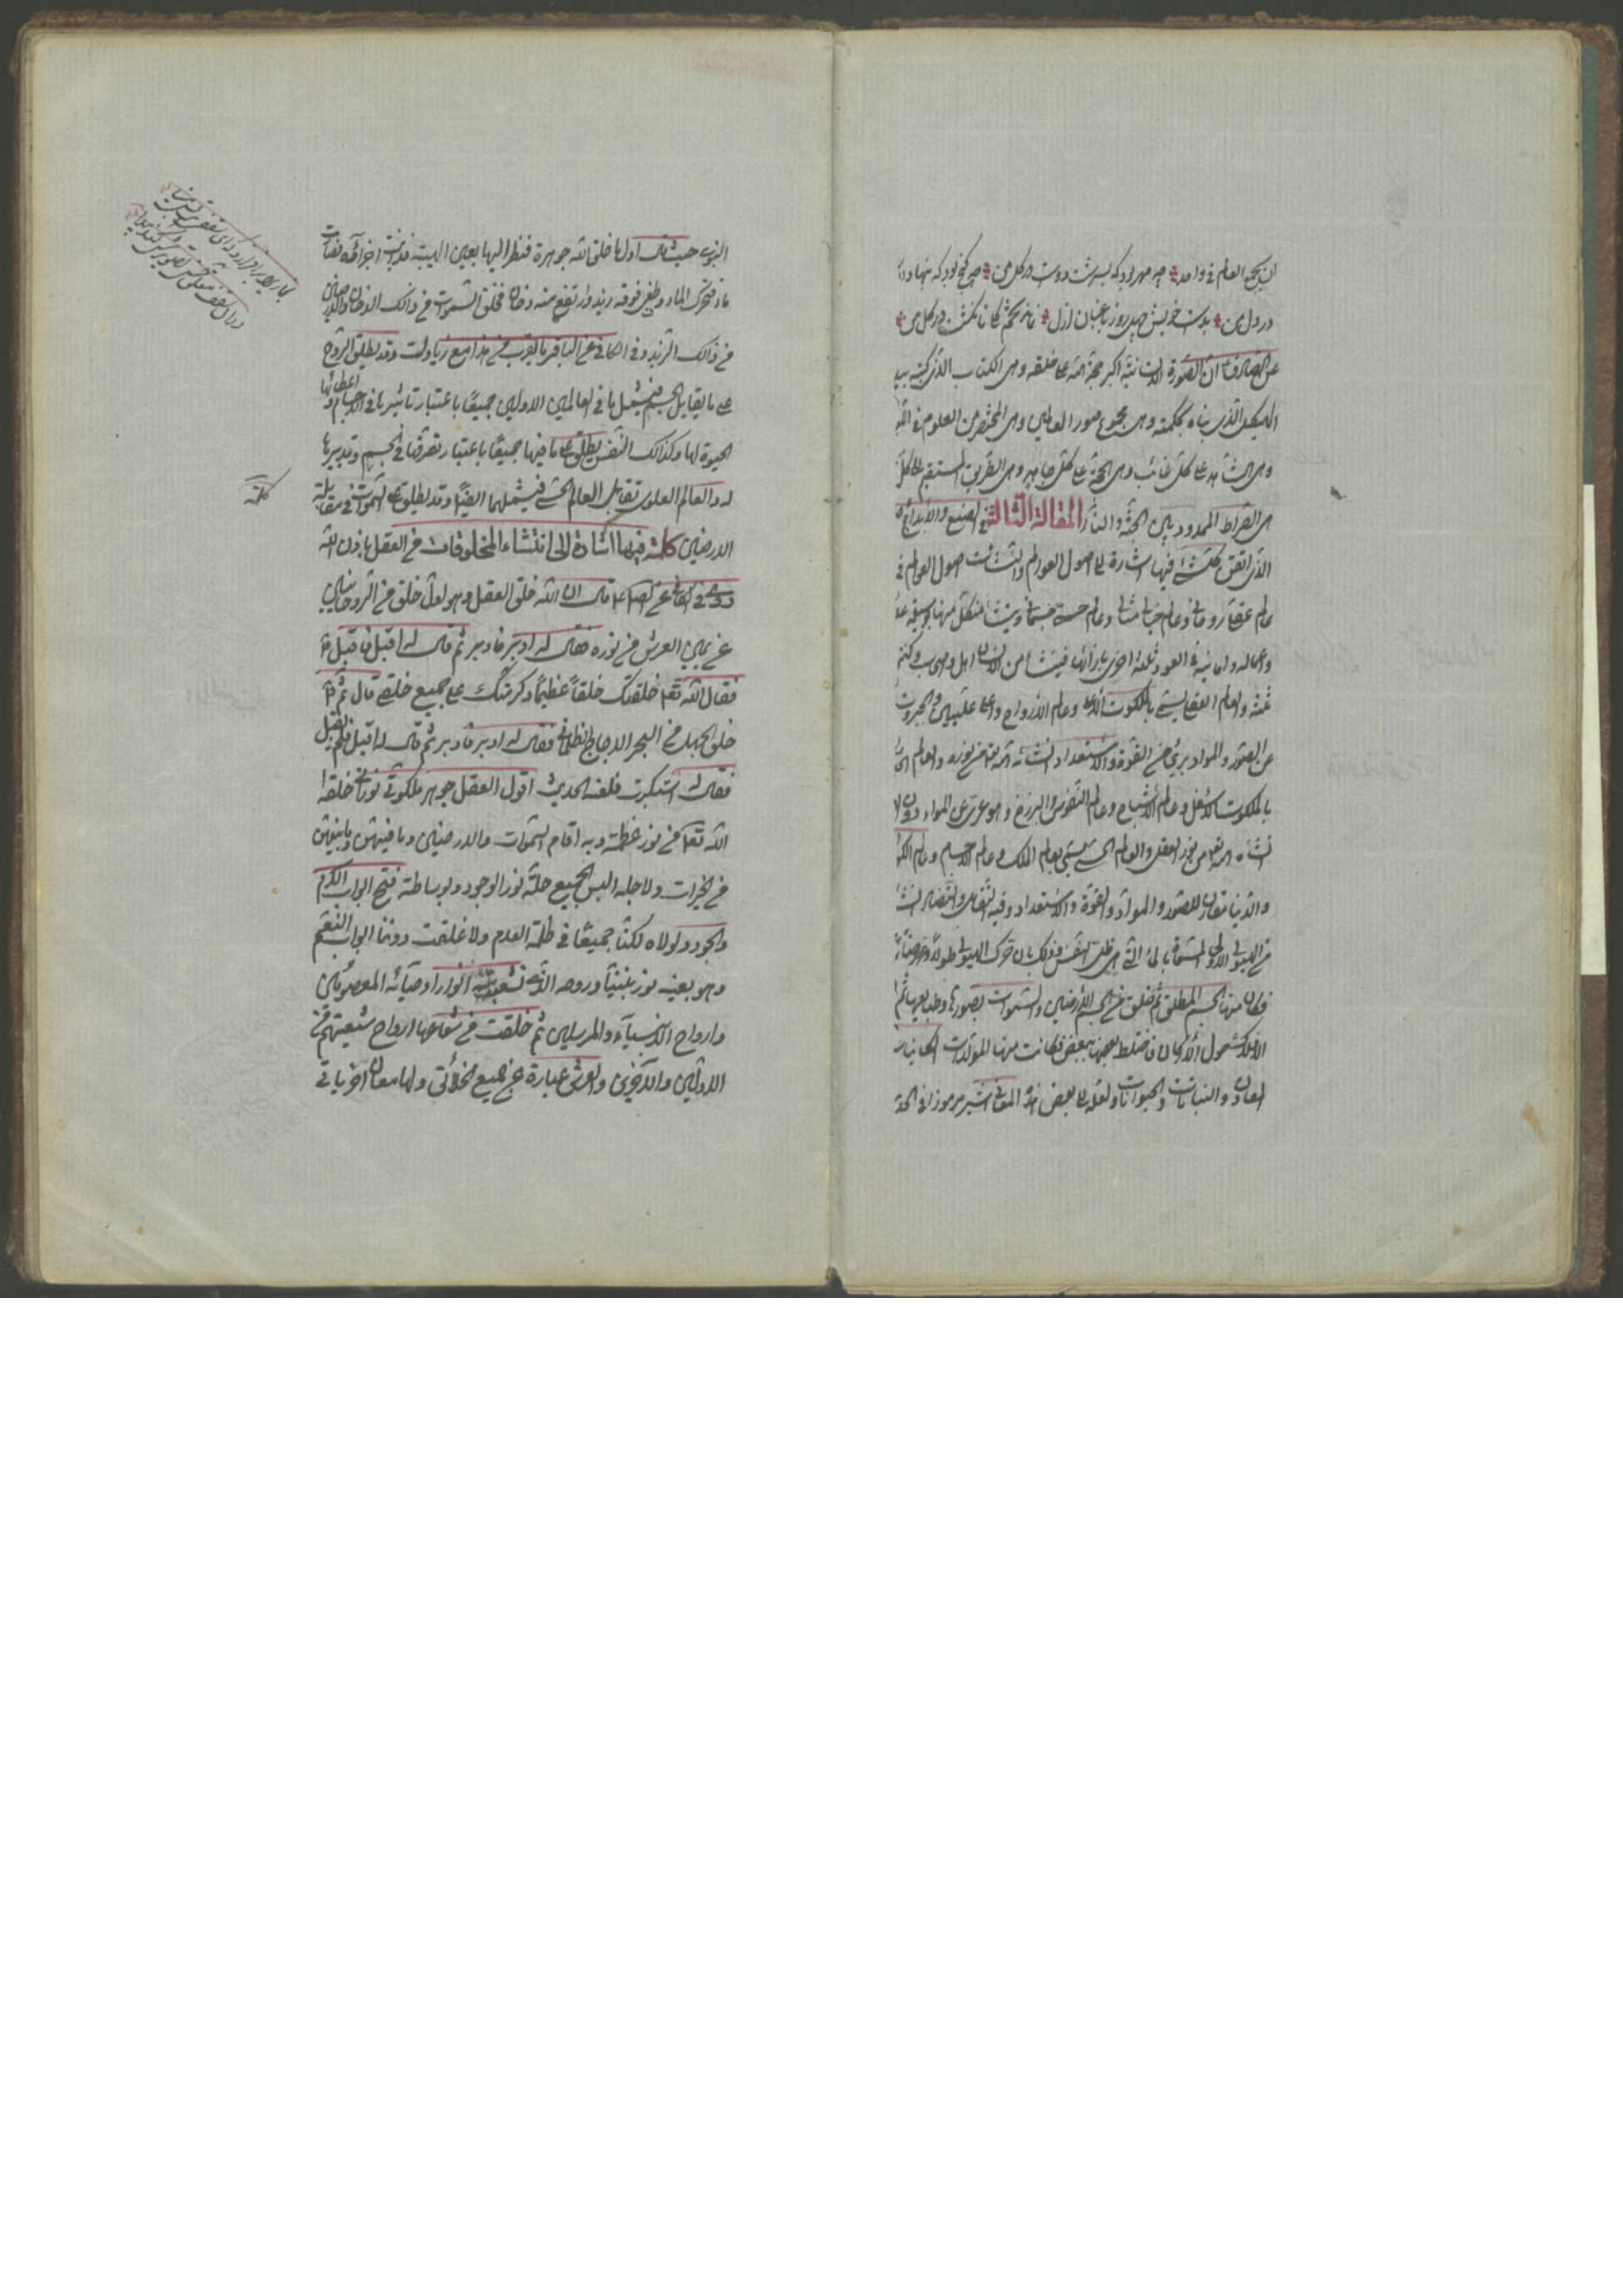 ان يجمع العالم فى واحد چه مهر بود که بسرشت دوست در گل من چه گنج بود که بنهاد در
در دل من بدست خويش چهل روز باغبان ازل نماند تخمى که نکشت در گل من
عن الصادق ان الصورة الانسانية اكبر حجة الله على خلقه وهى الكتاب الذى كتبه بيد
الهيكل الذى بناه بحكمته وهى مجموع صور العالمين وهى المختصر من العلوم فى اللو
وهى الشاهد على كل غائب وهى الحجة على كل جاحد وهى الطريق المستقيم الى كل
هى الصراط الممدود بين الجنة والنار المقالة الثالثة فى الصنع والابداع
الذى اتقن كل شئ فيها اشارة الى اصول العوالم والنشئات اصول العوالم
عالم عقلى روحانى وعالم خيالى مثالى وعالم حسى جسمانى وينشأ من كل منها بوسيلة
واعماله ولسانه فى العود ثلثة اخرى بازائها فينشأ من الانسان
ثلثة والعالم العقلى يسمى بالملكوت الاعلى وعالم الارواح واعلى عليين والجبروت
عن الصور والمواد برئ من القوة والاستعداد انشأه الله من نوره والعالم
بالملكوت الاسفل وعالم الاشباح وعالم النفوس والبرزخ وهو عرى عن المواد دون
انشأه الله من نور العقل والعالم الحسى يسمى بعالم الملك وعالم الاجسام وعالم
والدنيا مقارن للصور والمواد والقوة والاستعداد وفيه التقابل والتضاد
من الهيولى الاولى المسماة بالماء التى هى ظل النفس وذلك بان حرك الهيولى طولا وعرضا
فكان منها الجسم المطلق ثم خلق من الجسم الارضين والسموات بصورها وطبايعها ثم
الافلاك حول الاركان فاختلط بعضها ببعض فكانت منها المولدات
المعادن والنباتات والحيوانات ولعله الى بعض هذه المعانى اشير مرموزا فى
النبوى حيث قال اول ما خلق الله جوهرة فنظر اليها بعين الهيبة فذابت اجزائه فصارت
ماء فتحرك الماء وطفى فوقه زبد وارتفع منه دخان فخلق السموات من ذلك الدخان والارضين
من ذلك الزبد وفى الكافى عن الباقر ما يقرب من هذا مع زيادات وقد يطلق الروح
على ما يقابل الجسم فيشمل ما فى العالمين الاولين جميعا باعتبار تاثيرها فى الاجسام واعطائها
الحيوة لها وكذلك النفس يطلق على ما فيها جميعا باعتبار تصرفها فى الجسم وتدبيرها
له والعالم العلوى تقابل العالم الحسى فيشملهما ايضا وقد يطلق على السموات فى مقابلة
الارضين كلمة فيها اشارة الى انتشاء المخلوقات من العقل باذن الله
روى فى الكافى عن الصادق قال ان الله خلق العقل وهو اول خلق من الروحانيين
عن يمين العرش من نوره فقال له ادبر فادبر ثم قال له اقبل فاقبل
فقال الله تعالى خلقتك خلقا عظيما وكرمتك على جميع خلقى قال ثم
خلق الجهل من البحر الاجاج الظلمانى فقال له ادبر فادبر ثم قال له اقبل فلم يقبل
فقال له استكبرت فلعنه الحديث اقول العقل جوهر ملكوتى نورانى خلقه
الله تعالى من نور عظمته وبه اقام السموات والارضين وما فيهن وما بينهن
من الخيرات ولاجله البس الجميع حلة نور الوجود وبوساطته فتح ابواب الكرم
والجود ولولاه لكنا جميعا فى ظلمة العدم ولاغلقت دوننا ابواب النعم
وهو بعينه نور نبينا وروحه الذى تشعبت منه انوار اوصيائه المعصومين
وارواح الانبياء والمرسلين ثم خلقت من شعاعها ارواح شيعتهم من
الاولين والاخرين والعرش عبارة عن جميع الخلائق ولها معان اخر ياتى
كلمة